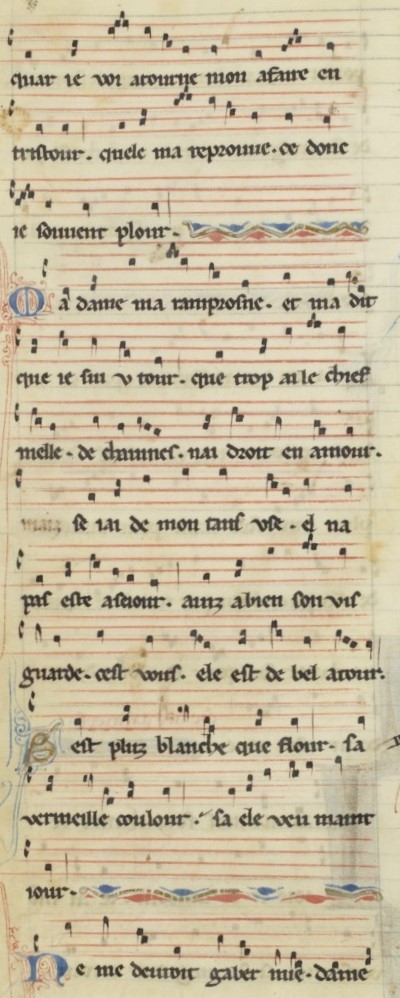 quar ie voi atourne mon afaire en
tristour. quele ma reprouue. ce donc
ie souuent plour.
Ma dame ma ramprosne. et ma dit
que ie sui v tour. que trop ai le chief
melle. de chaines. nai droit en amour.
mais se iai de mon tans vse. el na
pas este aseiour. ainz abien son vis
guarde. cest vous. ele est de bel atour.
est pluz blanche que flour. sa
vermeille coulour. sa ele veu maint
iour.
Ne me deuroit gaber mie. dame